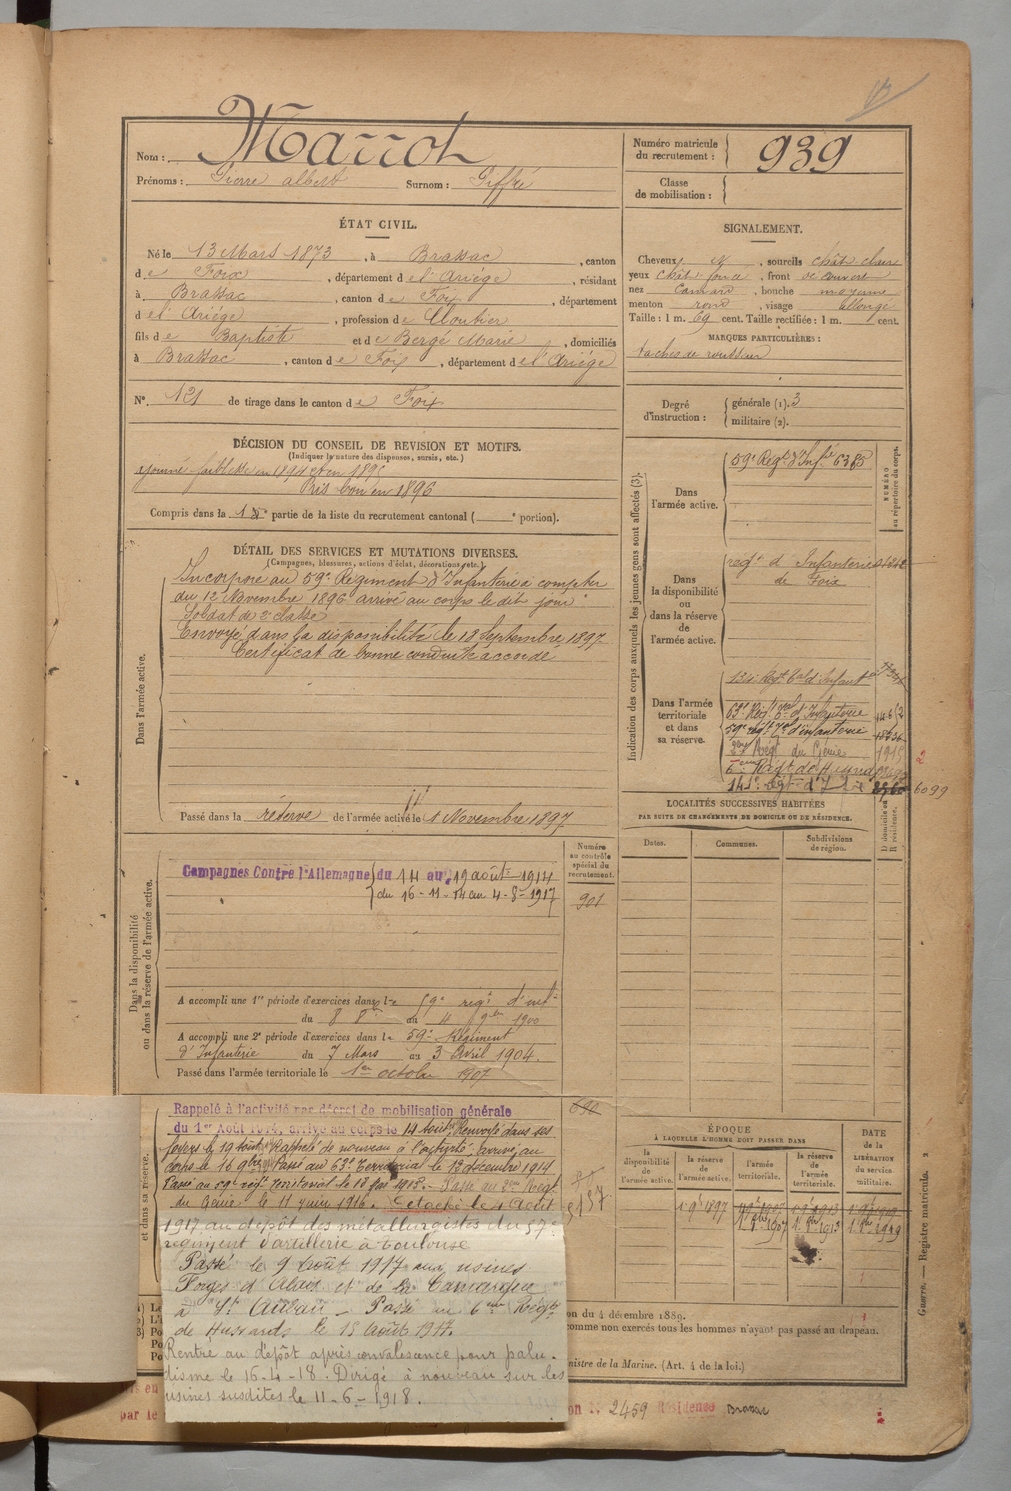 Nom : Marrot
Prénoms : Pierre albert Surnom : Siffré
Numéro matricule du recrutement : 939
Classe de mobilisation :
ÉTAT CIVIL.
Né le 13 Mars 1873, à Brassac, canton
de Foix, département de l'Ariége, résidant
à Brassac, canton de Foix, département
de l'Ariége, profession de Cloutier
fils de Baptiste et de Bergé Marie, domiciliés
à Brassac, canton de Foix, département de l'Ariége
N° 121 de tirage dans le canton de Foix
SIGNALEMENT.
Cheveux N, sourcils chât. clair
yeux chât. foncé, front découvert
nez Camard, bouche moyenne
menton rond, visage allongé
Taille : 1 m. 69 cent. Taille rectifiée : 1 m. cent.
MARQUES PARTICULIÈRES :
taches de rousseur
Degré d'instruction : générale (1). 3
militaire (2).
DÉCISION DU CONSEIL DE REVISION ET MOTIFS.
(Indiquer la nature des dispenses, sursis, etc.)
ajourné faiblesse en 1894 et en 1895
Pris bon en 1896
Compris dans la 1e partie de la liste du recrutement cantonal ( e portion).
DÉTAIL DES SERVICES ET MUTATIONS DIVERSES.
(Campagnes, blessures, actions d'éclat, décorations, etc.)
Dans l'armée active.
Incorporé au 59e Régiment d'Infanterie à compter
du 12 Novembre 1896 arrivé au corps le dit jour
Soldat de 2e classe
Envoyé dans la disponibilité le 18 Septembre 1897
Certificat de bonne conduite accordé
Passé dans la réserve de l'armée active le 1 Novembre 1897
Indication des corps auxquels les jeunes gens sont affectés (3).
NUMÉRO au répertoire du corps.
Dans l'armée active.
59e Régt d'Infie 6385
Dans la disponibilité ou dans la réserve de l'armée active.
régt d'Infanterie
de Foix
Dans l'armée territoriale et dans sa réserve.
134 Régt Tal d'Infant
63e Régt Tal d'Infanterie
59e régt Tal d'infanterie
2eme Régt du Génie
6eme Régt de Hussards
141e régt d'Ie
6099
2
LOCALITÉS SUCCESSIVES HABITÉES
PAR SUITE DE CHANGEMENTS DE DOMICILE OU DE RÉSIDENCE.
Dates. Communes. Subdivisions de région. D domicile ou R résidence.
Dans la disponibilité ou dans la réserve de l'armée active.
Numéro au contrôle spécial du recrutement.
901
Campagnes Contre l'Allemagne du 14 au 19 août 1914
du 16-11-14 au 4-8-1917
A accompli une 1re période d'exercices dans le 59e régt d'inft
du 8 8bre au 4 9bre 1900
A accompli une 2e période d'exercices dans le 59e Régiment
d'Infanterie du 7 Mars au 3 Avril 1904.
Passé dans l'armée territoriale le 1er octobre 1907
et dans sa réserve.
690
Rappelé à l'activité par décret de mobilisation générale
du 1er Août 1914, arrivé au corps le 14 août. Renvoyé dans ses
foyers le 19 août. Rappelé de nouveau à l'activité, arrivé au
corps le 16 9bre. Passé au 63e Territorial le 12 décembre 1914
Passé au 59e régt territorial le Passé au 2eme Régt
du Génie le 11 juin 1916. Détaché le 4 Août
1917 au dépôt des métallurgistes du 57e
régiment d'artillerie à Toulouse
Passé le 9 Août 1917 aux usines
Forges d'Alais et de la Camargue
à St Auban - Passé au 6eme Régt
de Hussards le 15 Août 1917.
Rentré au dépôt après convalescence pour palu-
disme le 16-4-18. Dirigé à nouveau sur les
usines susdites le 11-6-1918.
ÉPOQUE
À LAQUELLE L'HOMME DOIT PASSER DANS
la disponibilité de l'armée active. la réserve de l'armée active. l'armée territoriale. la réserve de l'armée territoriale.
DATE de la LIBÉRATION du service militaire.
on du 4 décembre 1889.
comme non exercés tous les hommes n'ayant pas passé au drapeau.
nistre de la Marine. (Art. 4 de la loi.)
Guerre. — Registre matricule. 2
par le
on N° 2459 Résidence Brassac